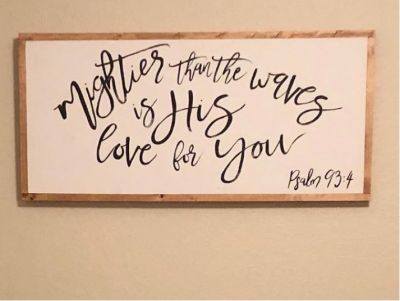 Mightier than the waves
is His
love for you
Psalm 93:4